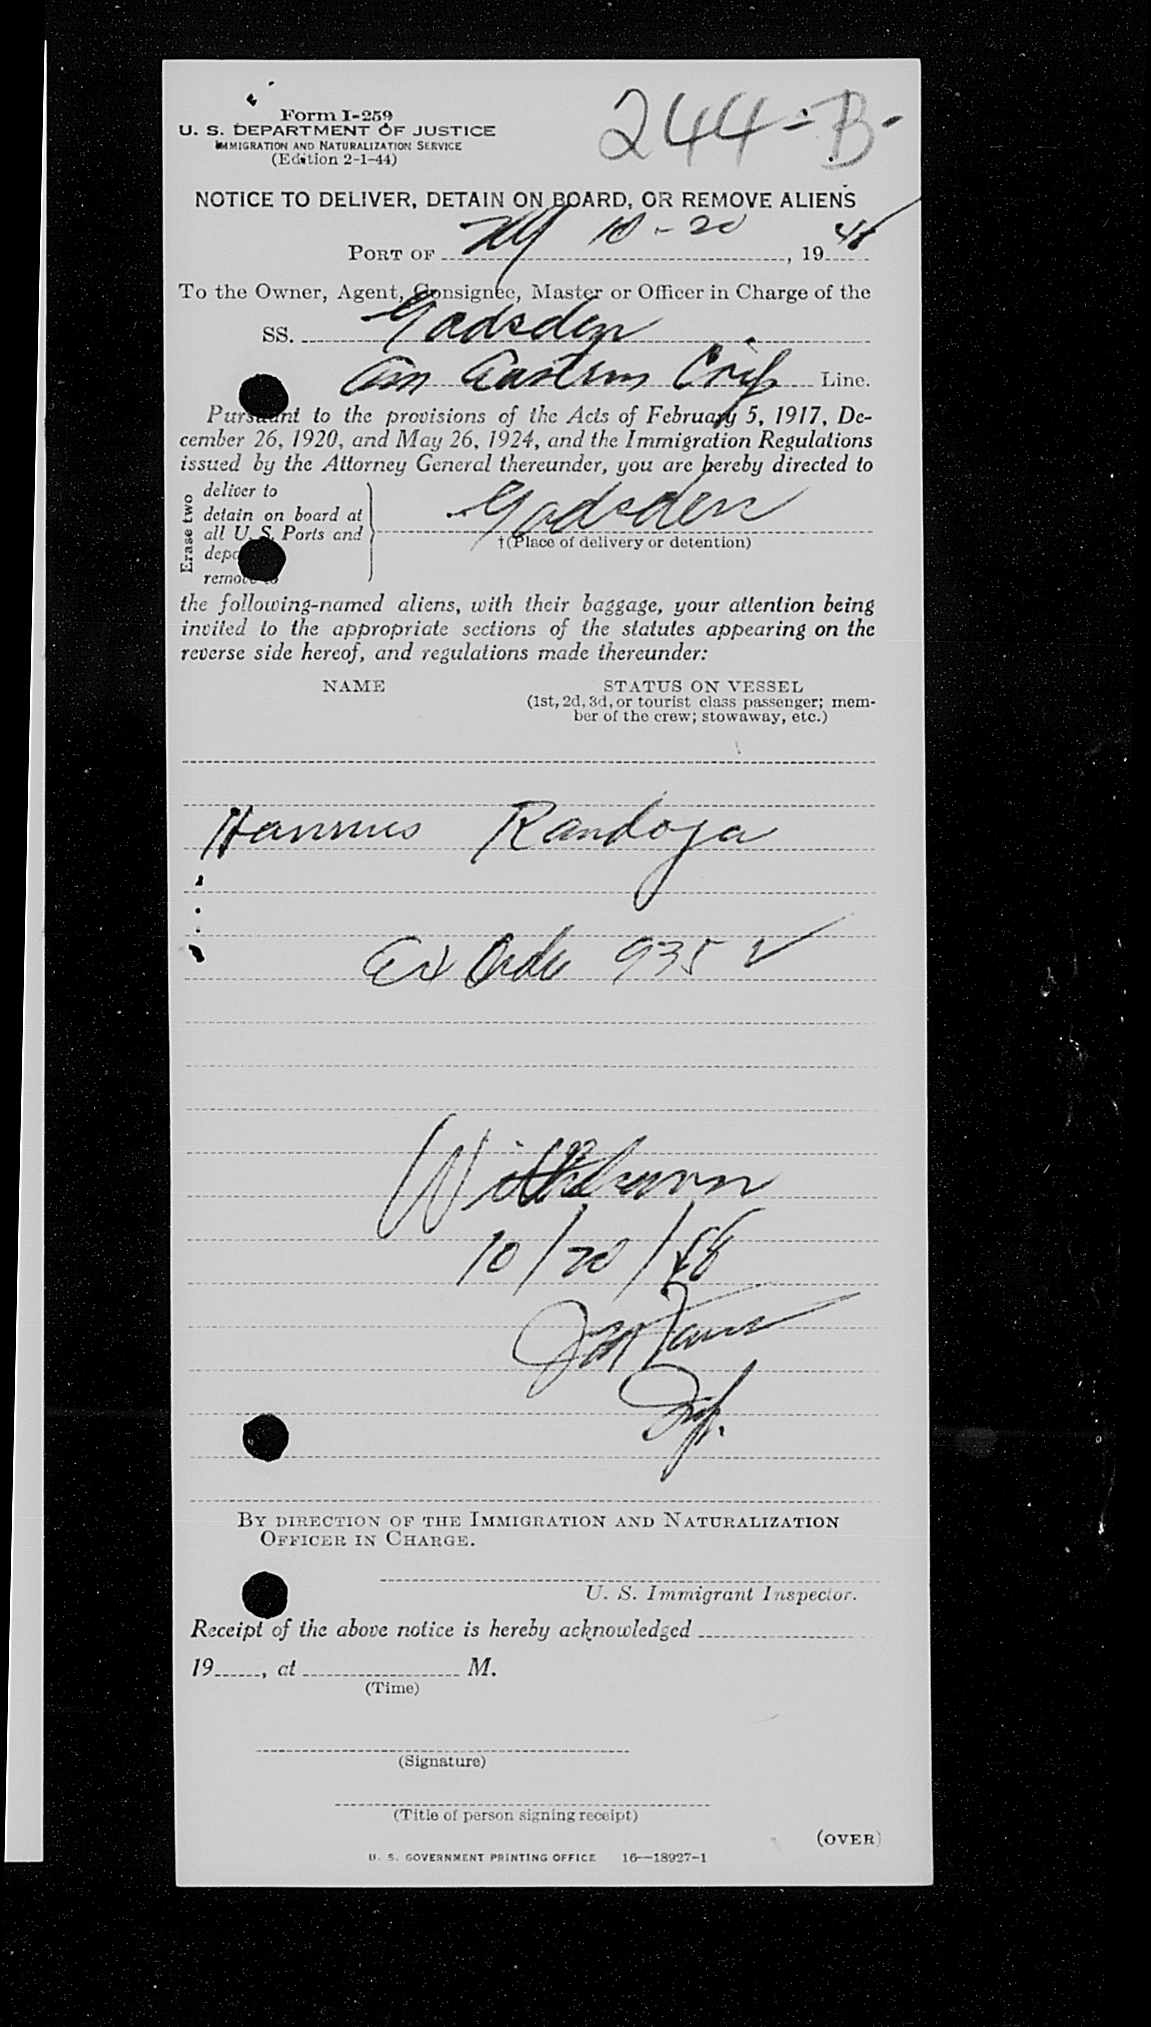 244-B-
Form I-259
U. S. DEPARTMENT OF JUSTICE
IMMIGRATION AND NATURALIZATION SERVICE
(Edition 2-1-44)
NOTICE TO DELIVER, DETAIN ON BOARD, OR REMOVE ALIENS
PORT OF NY 10-20, 1948
To the Owner, Agent, Consignee, Master or Officer in Charge of the
SS. Gadsden
Am Eastern Corp Line.
Pursuant to the provisions of the Acts of February 5, 1917, De-
cember 26, 1920, and May 26, 1924, and the Immigration Regulations
issued by the Attorney General thereunder, you are hereby directed to
Erase two
deliver to
detain on board at
all U. S. Ports and
remove to
Gadsden
†(Place of delivery or detention)
the following-named aliens, with their baggage, your attention being
invited to the appropriate sections of the statutes appearing on the
reverse side hereof, and regulations made thereunder:
NAME
STATUS ON VESSEL
(1st, 2d, 3d, or tourist class passenger; mem-
ber of the crew; stowaway, etc.)
Hannus Randoja
Ex Order 935
Withdrawn
10/20/48
Insp.
BY DIRECTION OF THE IMMIGRATION AND NATURALIZATION
OFFICER IN CHARGE.
U. S. Immigrant Inspector.
Receipt of the above notice is hereby acknowledged
19, at M.
(Time)
(Signature)
(Title of person signing receipt)
(OVER)
U. S. GOVERNMENT PRINTING OFFICE 16—18927-1